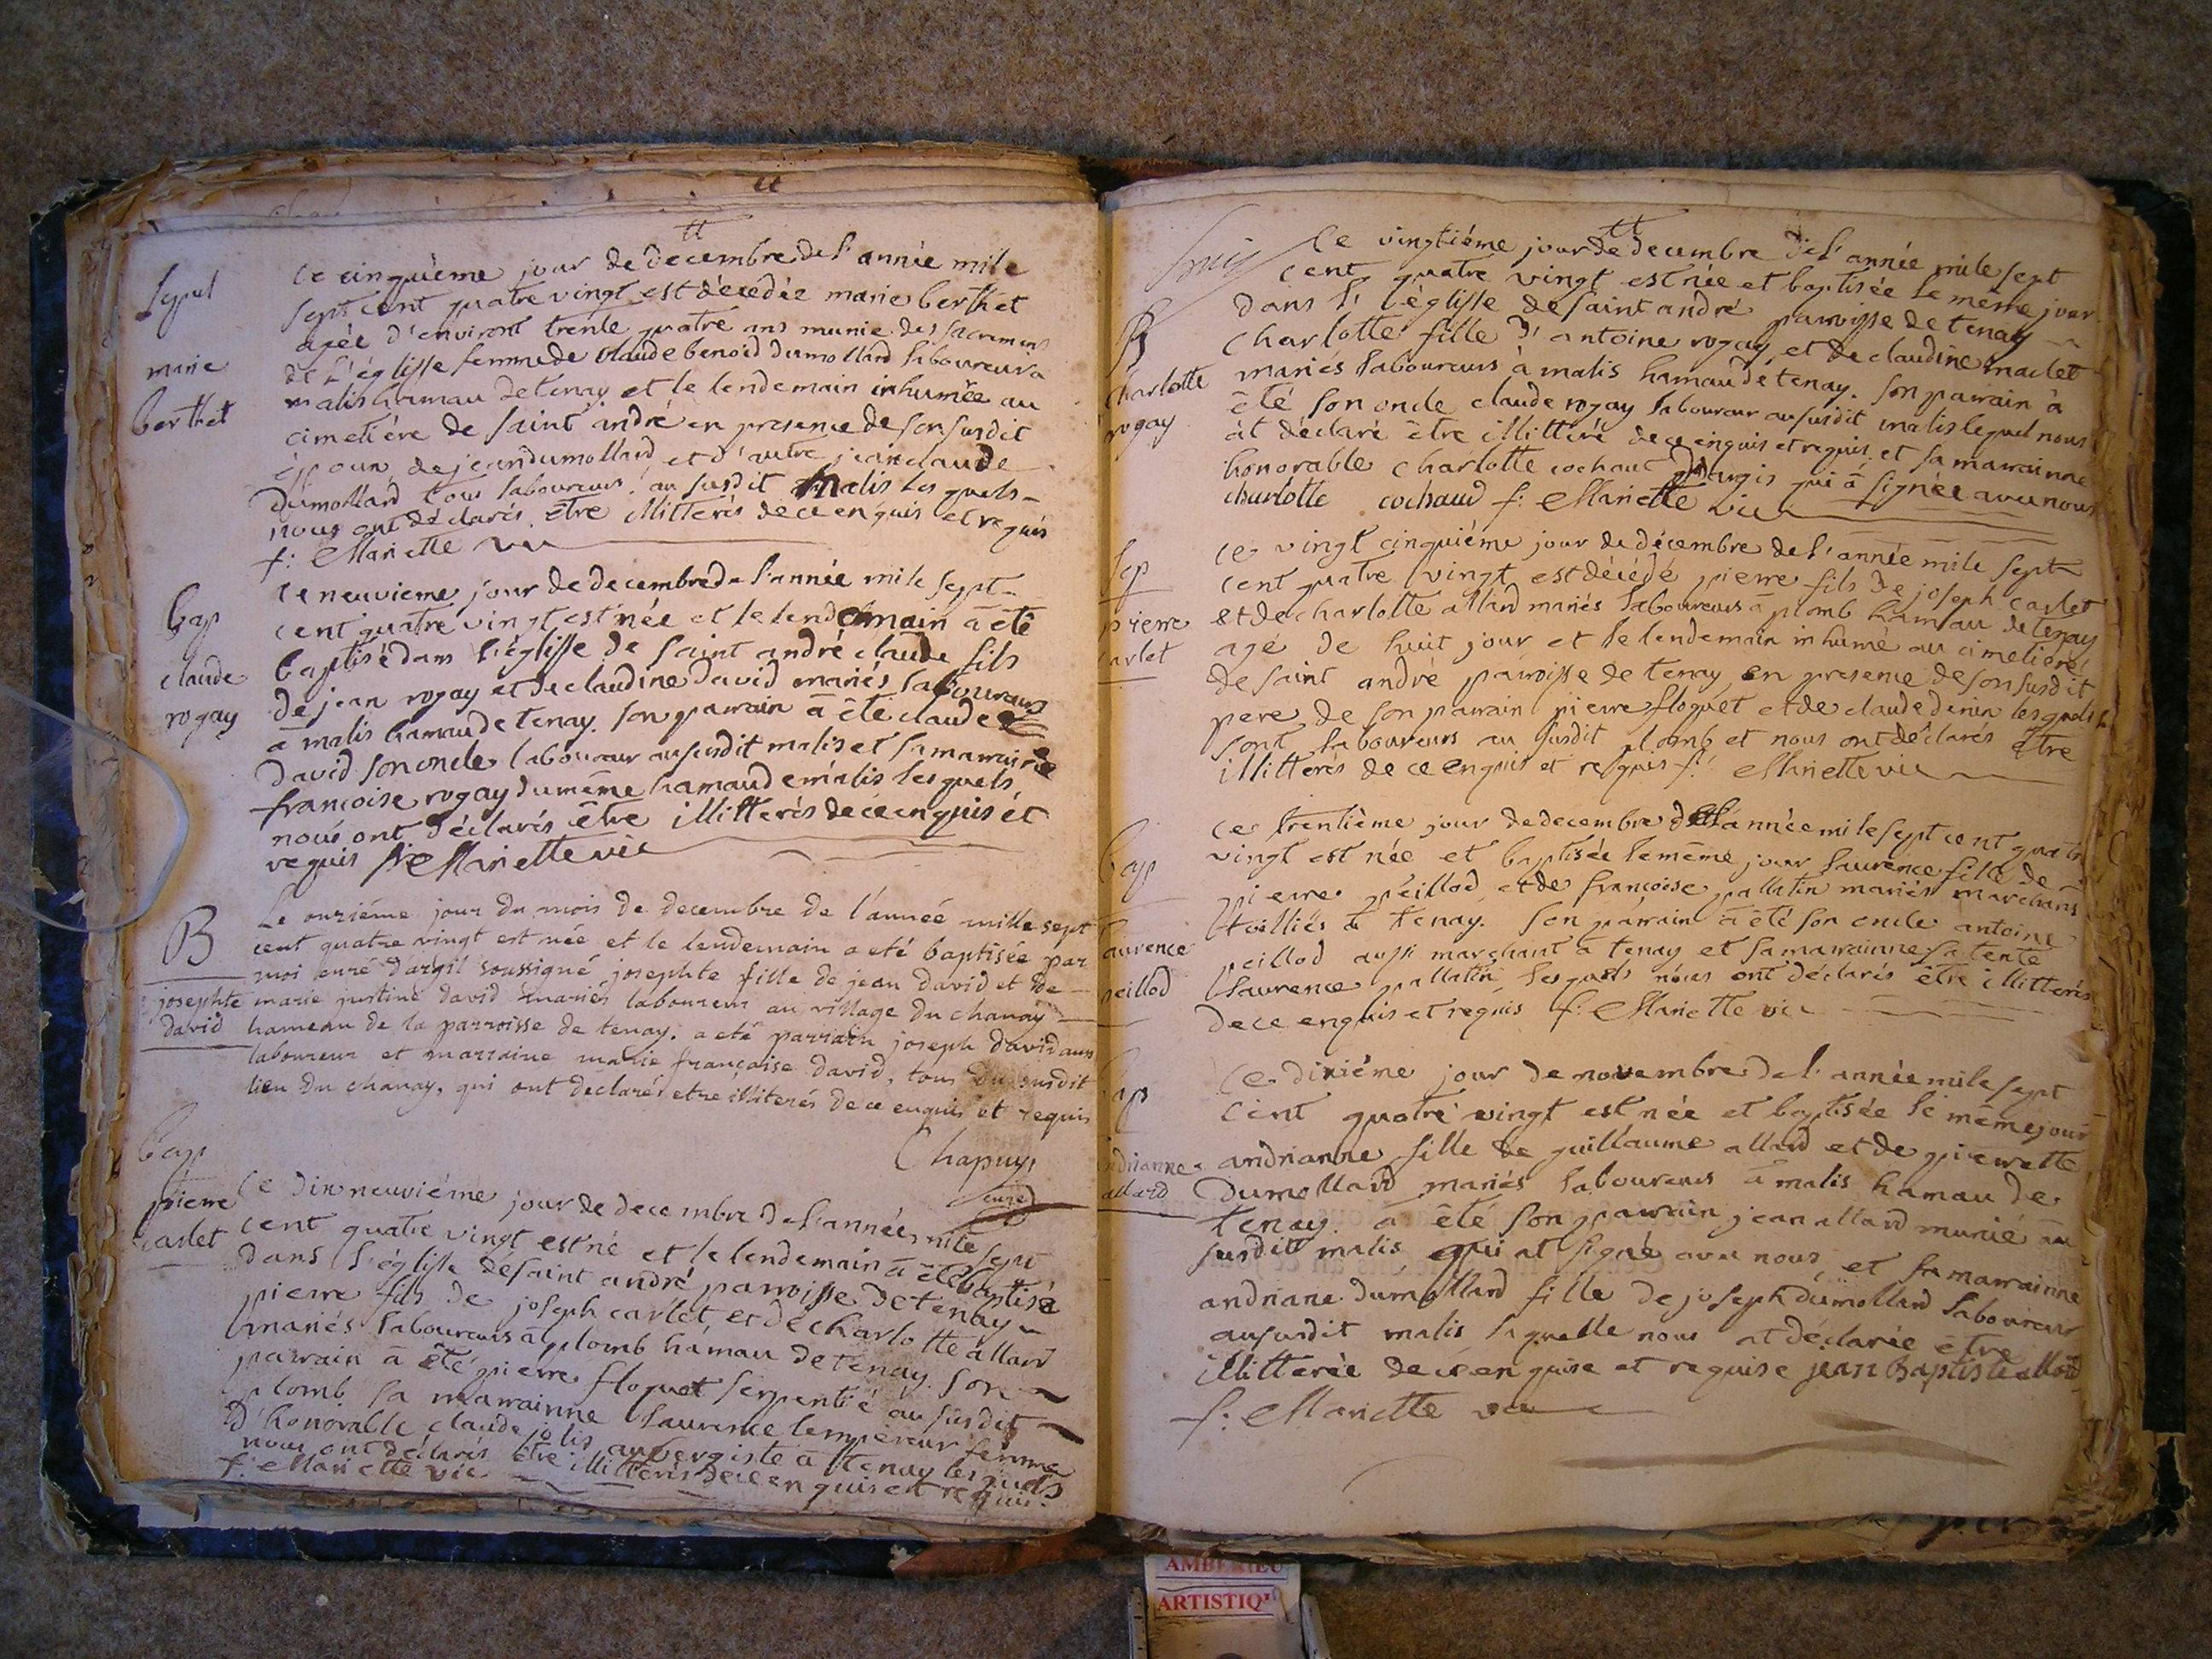 tt
Sepul
marie
berthet
Ce cinquiéme jour de decembre de l'année mile
sept cent quatre vingt est décedée marie berthet
agée d'environt trente quatre ans munie des sacremens
de l'églisse femme de claude benoid dumollard laboureur a
malis hamau de tenay et le lendemain inhumée au
cimetiére de saint andré en presence de son susdit
époux de jean dumollard et d'autre jean claude
dumollard tous laboureurs au susdit malis les quels
nous ont déclarés être illitterés de ce enquis et requis
f: Mariette vic
bap
claude
rogay
Ce neuvieme jour de decembre de l'année mile sept
cent quatre vingt est née et le lendemain à été
baptisé dans l'églisse de saint andré claude fils
de jean rogay et de claudine david mariés laboureurs
à malis hamau de tenay. son parrain à été claude
david son oncle laboureur au susdit malis et sa marainne
francoise rogay du même hamaud e malis les quels
nous ont déclarés être illitterés de ce enquis et
requis f: Mariette vic
B
josephte
david
Le onziéme jour du mois de decembre de l'année mille sept
cent quatre vingt est née et le lendemain a eté baptisée par
moi curé d'argil soussigné josephte fille de jean david et de
marie justine david mariés laboureur au village du chanay
hameau de la parroisse de tenay. a eté parrain joseph david aussi
laboureur et marraine marie françoise david, tous du susdit
lieu du chanay, qui ont déclarés etre illiterés de ce enquis et requis
Chapuy
curé
bap
pierre
carlet
Ce dix neuviéme jour de decembre de l'année mile sept
cent quatre vingt est né et le lendemain à été baptisé
dans l'églisse de saint andré parroisse de tenay
pierre fils de joseph carlet et de charlotte allard
mariés laboureurs à plomb hamau de tenay son
parrain à été pierre floquet serpentié au susdit
plomb sa marrainne laurence lempereur femme
d'honorable claude jolis aubergiste à tenay les quels
nous ont déclarés être illitterés de ce enquis et requis.
f: Mariette vic
tt
B
charlotte
rogay
Ce vingtiéme jour de decembre de l'année mile sept
cent quatre vingt est née et baptisée le même jour
dans l' l'églisse de saint andré parroisse de tenay
charlotte fille d'antoine rogay, et de claudine maclet
mariés laboureurs à malis hamau de tenay. son parrain à
été son oncle claude rogay laboureur au susdit malis lequel nous
àt déclaré être illitteré de ce enquis et requis. et sa marrainne
honorable charlotte cochaut d'argis qui à signée avec nous
charlotte cochaud f: Mariette vic
Sep
pierre
carlet
Ce vingt cinquiéme jour de décembre de l'année mile sept
cent quatre vingt est décédé pierre fils de joseph carlet
et de charlotte allard mariés laboureurs à plomb hamau de tenay
agé de huit jour et le lendemain inhumé au cimetiére
de saint andré parroisse de tenay en presence de son susdit
pere, de son parrain pierre floquet et de claude les quels
sont laboureurs au susdit plomb et nous ont déclarés être
illitterés de ce enquis et requis f: Mariette vic
bap
laurence
peillod
Ce trentiéme jour de decembre de l'année mile sept cent quatre
vingt est née et baptisée le même jour laurence fille de
pierre peillod et de françoise pallatin mariés marchans
à tenay. son parrain à été son oncle antoine
peillod aussi marchant à tenay et sa marrainne sa tente
laurence pallatin les quels nous ont déclarés être illitterés
de ce enquis et requis f: Mariette vic
bap
andrianne
allard
Ce dixiéme jour de novembre de l'année mile sept
cent quatre vingt est née et baptisée le même jour
andrianne fille de guillaume allard et de pierrette
dumollard mariés laboureurs à malis hamau de
tenay. à été son parrain jean allard munié au
susdit malis qui at signé avec nous, et sa marrainne
andriane dumollard fille de joseph dumollard laboureur
au susdit malis laquelle nous at déclarée être
illitterée de ce enquise et requise jean Baptiste allard
f: Mariette vic
AMBERIEU
ARTISTIQ